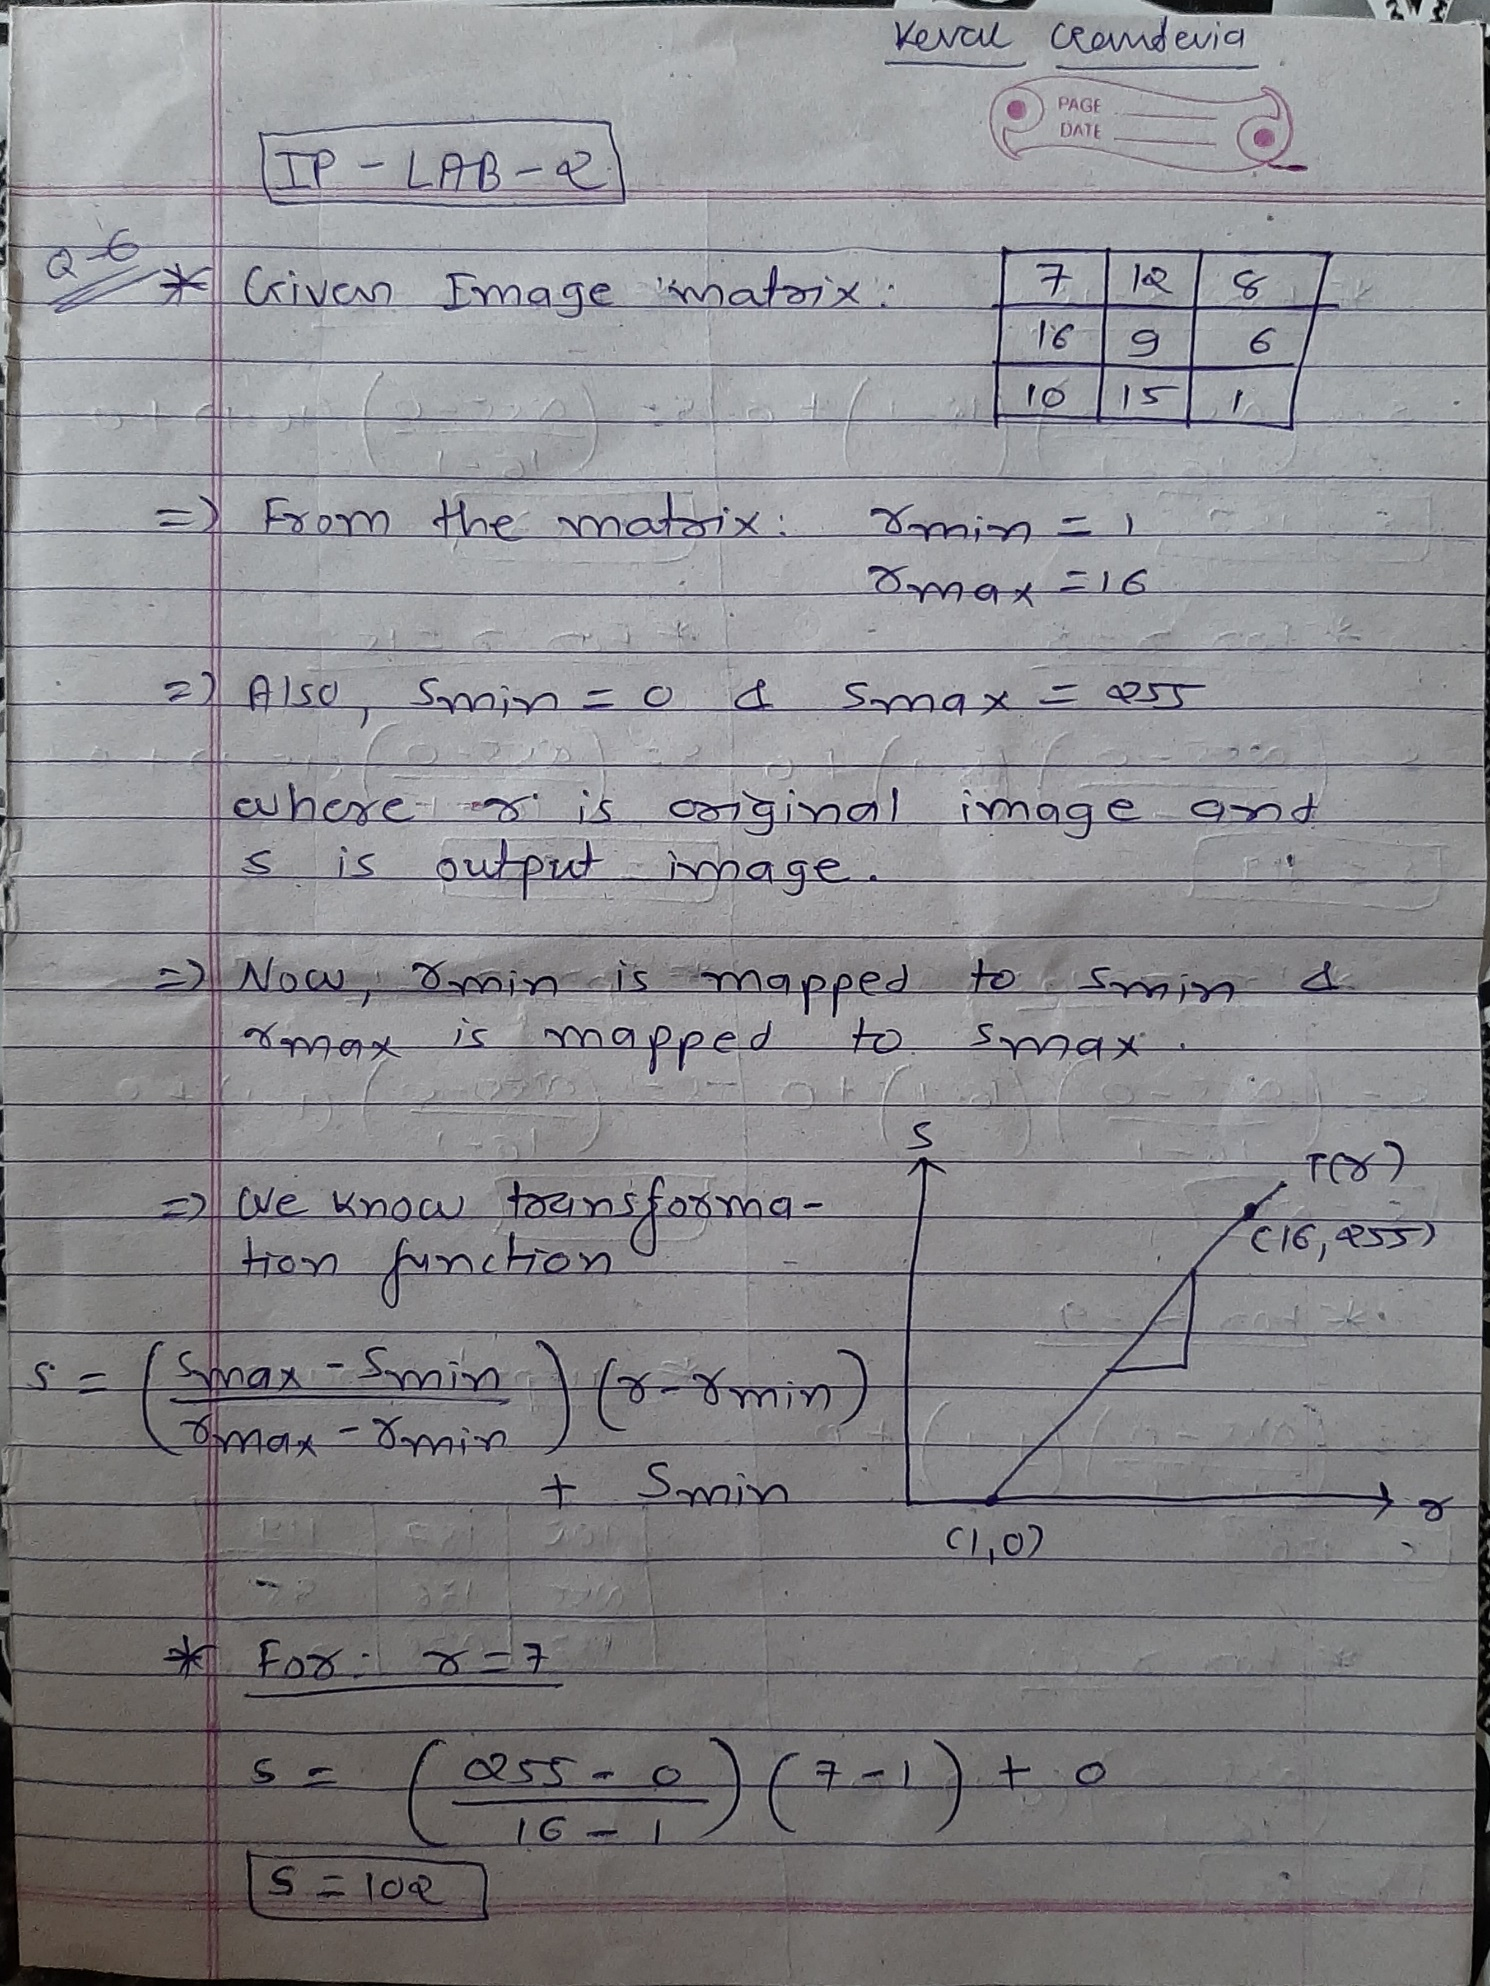 Keval
PAGE
DATE
IP - LAB - 2
Q-6
* Given Image matrix:
7 12 8
16 9 6
10 15 1
=> From the matrix: rmin = 1
rmax = 16
=> Also, Smin = 0 & Smax = 255
where r is original image and
s is output image.
=> Now, rmin is mapped to Smin &
rmax is mapped to Smax.
=> We know transforma-
tion function
S = (Smax - Smin / rmax - rmin) (r - rmin)
+ Smin
S
T(r)
(16, 255)
r
(1,0)
* For: r = 7
S = (255 - 0 / 16 - 1) (7 - 1) + 0
S = 102